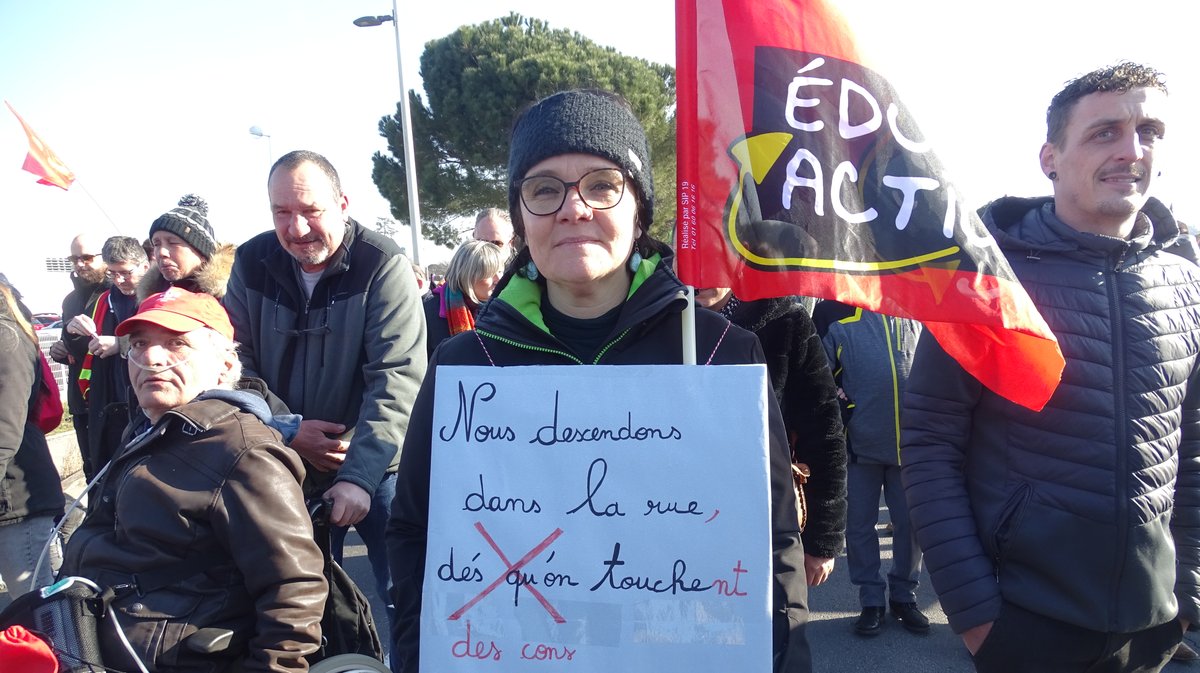 ÉDU
ACTI
Réalisé par SIP 19
Nous descendons
dans la rue,
dés qu'on touchent
des cons